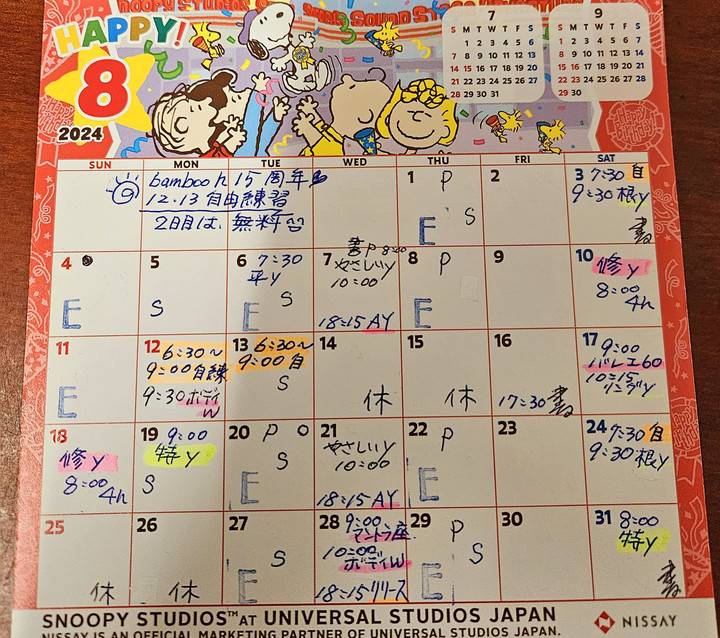 HAPPY!
8
2024
7
S M T W T F S
1 2 3 4 5 6
7 8 9 10 11 12 13
14 15 16 17 18 19 20
21 22 23 24 25 26 27
28 29 30 31
9
S M T W T F S
1 2 3 4 5 6 7
8 9 10 11 12 13 14
15 16 17 18 19 20 21
22 23 24 25 26 27 28
29 30
SUN MON TUE WED THU FRI SAT
bamboo h 15周年
12.13 自由練習
2日目は、無料
1 P
S
E
2
3 7:30 自
9:30 根y
書
4
E
5
S
6 7:30
平y
S
E
7 書P 8:00
やさしいy
10:00
18:15 AY
8 P
E
9
10
修y
8:00
4h
11
E
12 6:30~
9:00 自練
9:30 ボディ
W
13 6:30~
9:00 自
S
14
休
15
休
16
17:30 書
17 9:00
バレエ60
10:15
リンデy
18
修y
8:00
4h
19 9:00
特y
S
20 P O
S
E
21
やさしいy
10:00
18:15 AY
22 P
E
23
24 7:30 自
9:30 根y
25
休
26
休
27
S
E
28 9:00
マントラ座
10:00
ボディW
18:15 リリース
29 P
S
E
30
31 8:00
特y
書
SNOOPY STUDIOS™ AT UNIVERSAL STUDIOS JAPAN
NISSAY IS AN OFFICIAL MARKETING PARTNER OF UNIVERSAL STUDIOS JAPAN.
NISSAY